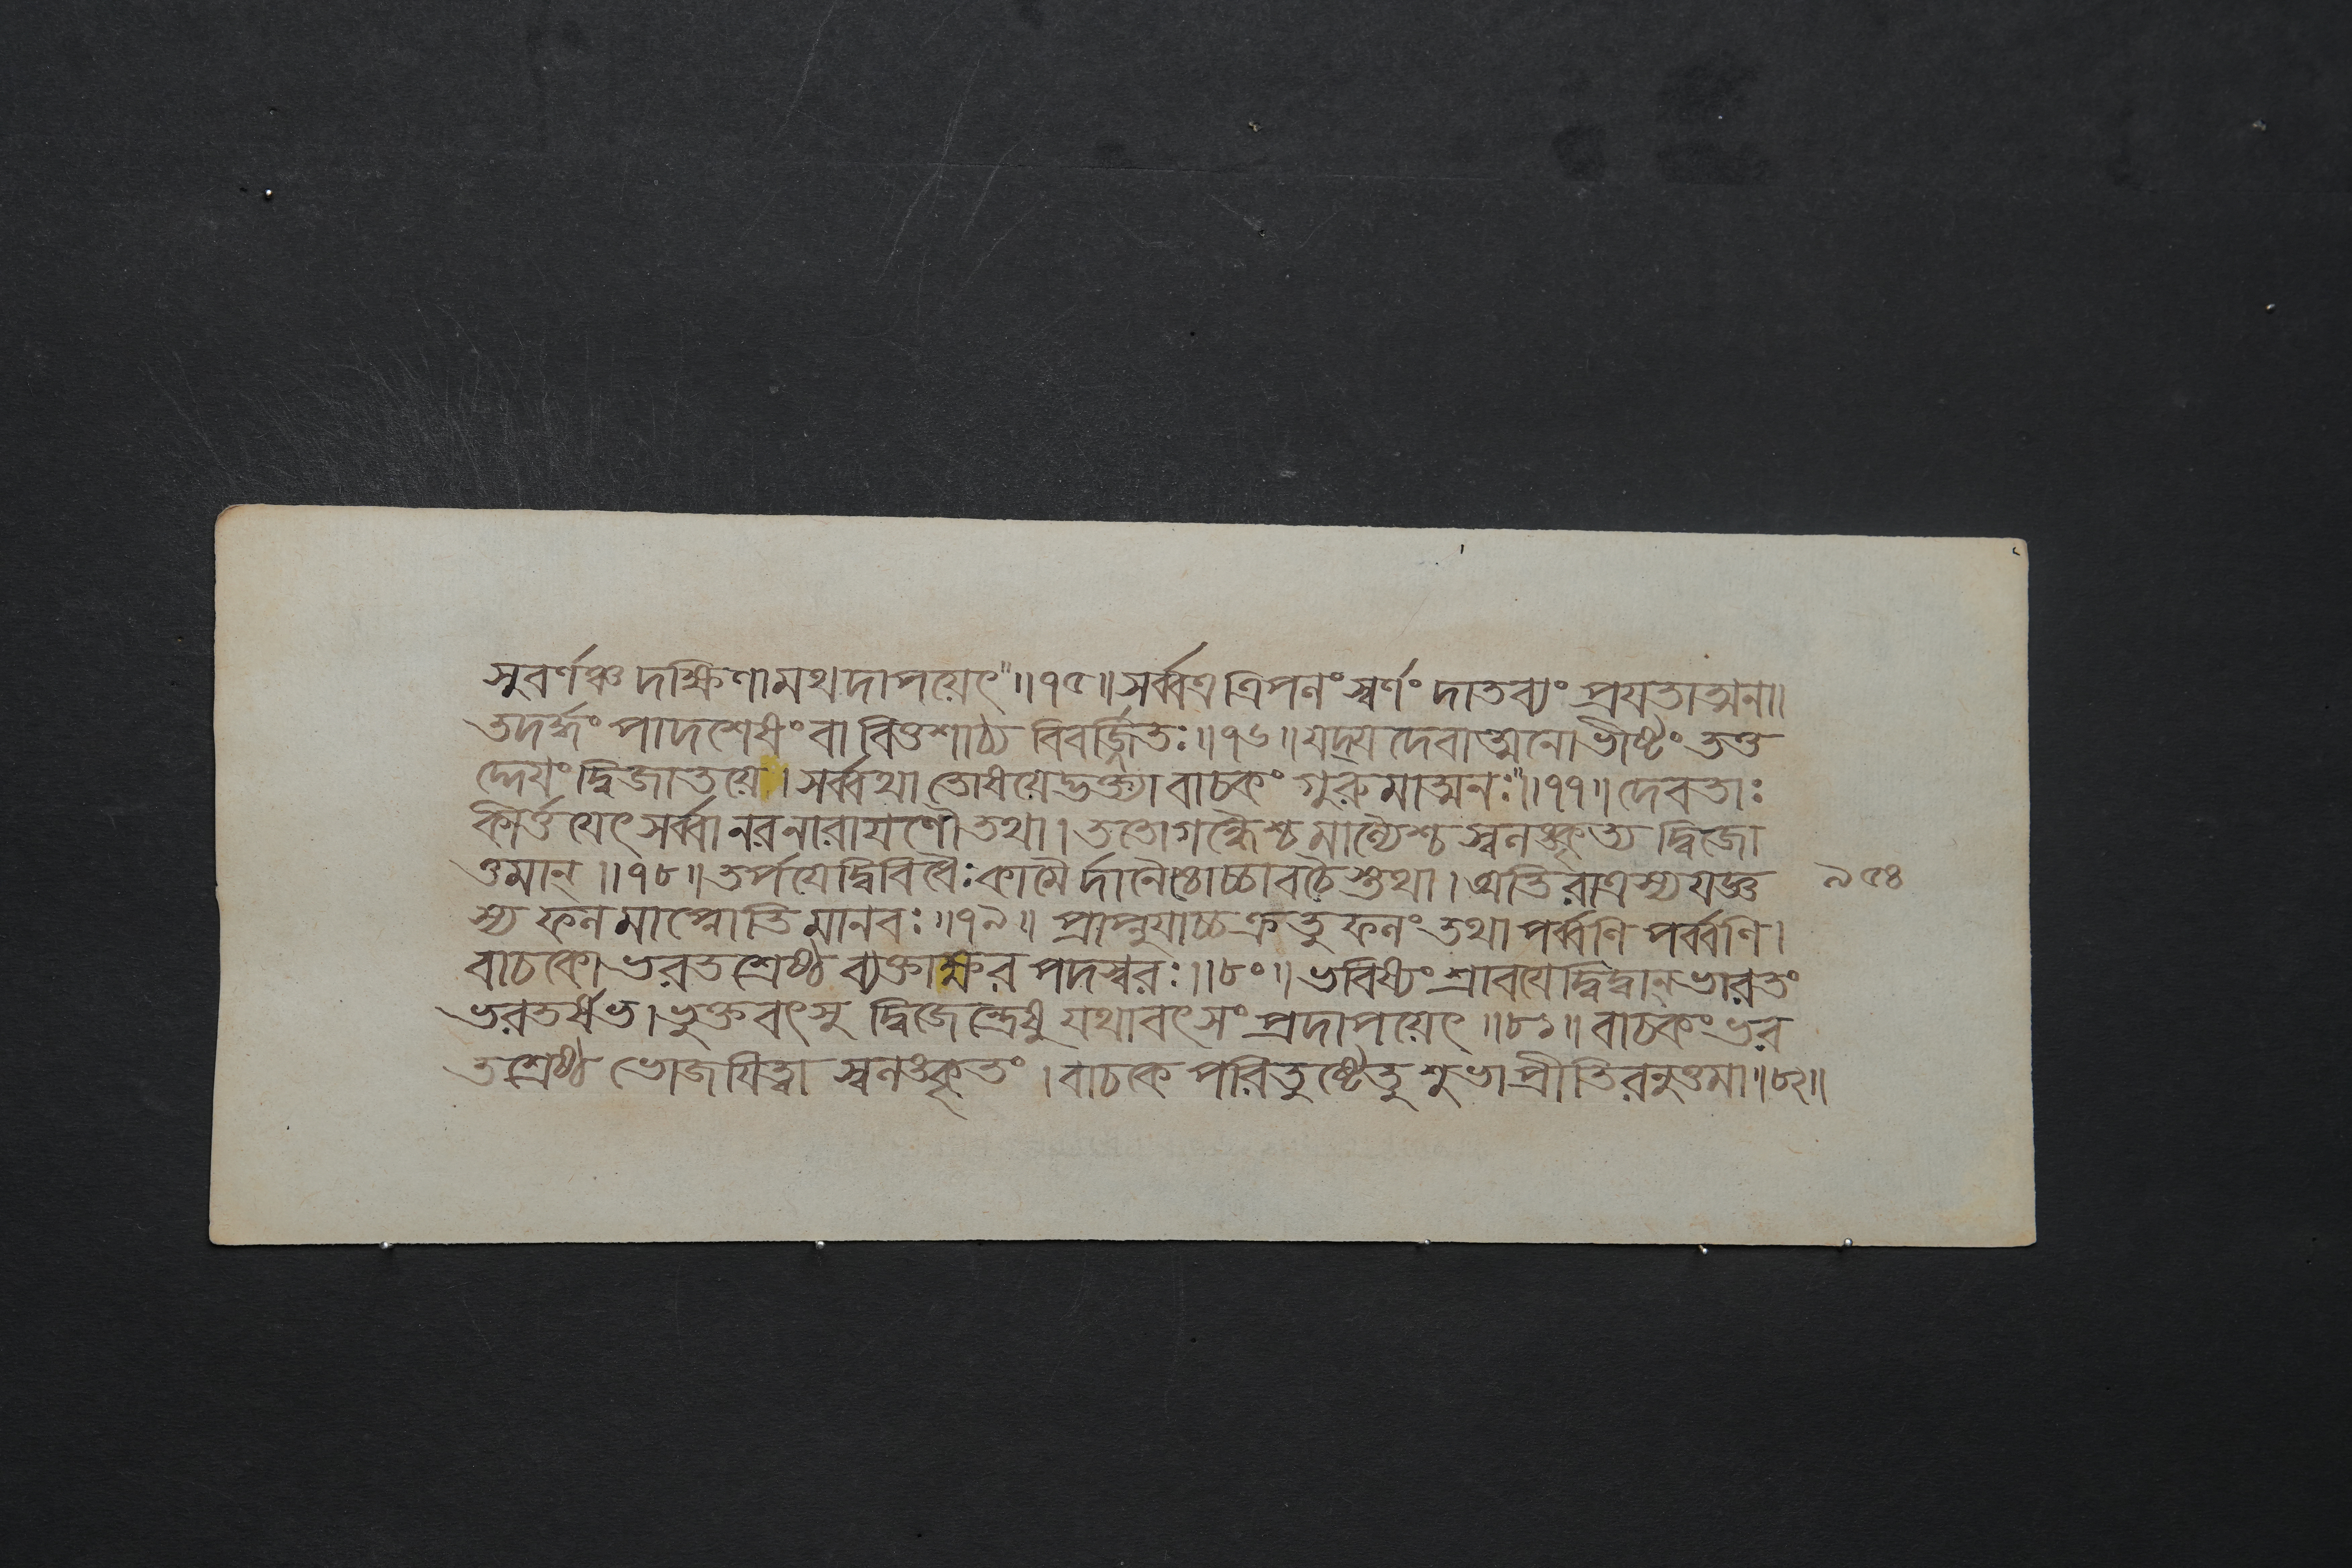 সুবর্ণঞ্চ দক্ষিণামথদাপয়েৎ"॥৭৫॥সর্ব্বত্র ত্রিপলং স্বর্ণং দাতব্যং প্রযতাত্মনা॥
তদর্দ্ধং পাদশেষং বা বিত্তশাঠ্য বিবর্জ্জিতঃ॥৭৬॥যদ্যদেবাত্মনোভীষ্টং তত্ত
দ্দেয়ং দ্বিজাতয়ে।সর্ব্বথা তোষয়েদ্ভক্ত্যা বাচকং গুরুমাত্মনঃ"॥৭৭॥দেবতাঃ
কীর্ত্তয়েৎসর্ব্বা নরনারায়ণৌ তথা।ততো গন্ধৈশ্চ মাল্যৈশ্চ স্বলঙ্কৃত্য দ্বিজো
ত্তমান্॥৭৮॥তর্পয়েদ্বিবিধৈঃ কামৈর্দানৈশ্চোচ্চাবচৈস্তথা।অতিরাত্রস্য যজ্ঞ ৯৫৪
স্য ফলমাপ্নোতি মানবঃ॥৭৯॥ প্রাপ্নুয়াচ্চক্রতুফলং তথা পর্ব্বণি পর্ব্বণি।
বাচকো ভরতশ্রেষ্ঠ ব্যক্তাক্ষর পদস্বরঃ॥৮০॥ভবিষ্যং শ্রাবয়েদ্বিদ্বান্ ভারতং
ভরতর্ষভ।ভুক্তবৎসু দ্বিজেন্দ্রেষু যথাবৎসং প্রদাপয়েৎ॥৮১॥বাচকং ভর
তশ্রেষ্ঠ ভোজয়িত্বা স্বলঙ্কৃতং।বাচকে পরিতুষ্টেতু শুভা প্রীতিরনুত্তমা॥৮২॥